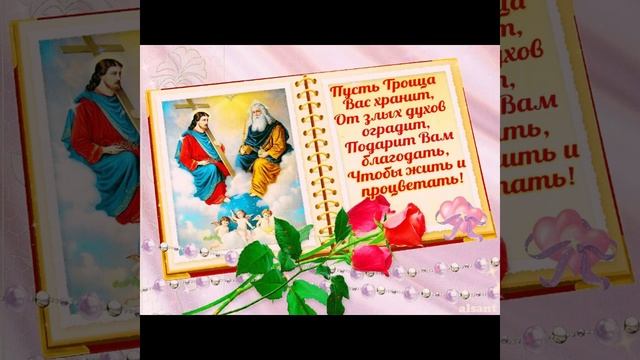 Пусть Троица
Вас хранит,
От злых духов
оградит,
Подарит Вам
благодать,
Чтобы жить и
процветать!
alsant